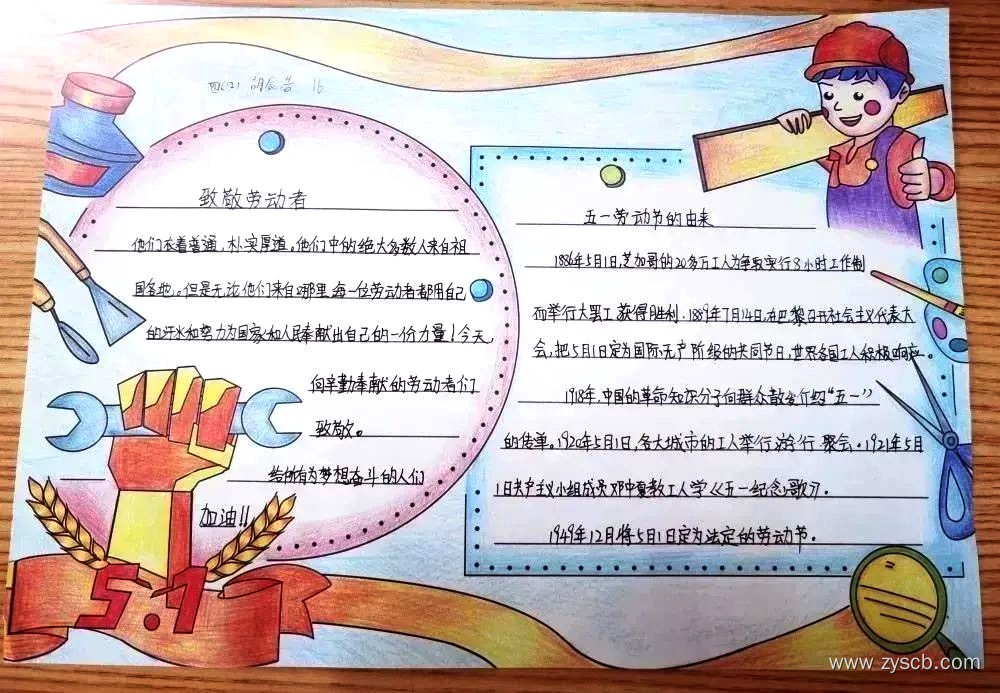 四(2) 胡 浩 16
致敬劳动者
他们衣着普通,朴实厚道。他们中的绝大多数人来自祖
国各地。但是无论他们来自哪里,每一位劳动者都用自己
的汗水和努力为国家和人民奉献出自己的一份力量!今天,
向辛勤奉献的劳动者们
致敬。
给所有为梦想奋斗的人们
加油!!
5.1
五一劳动节的由来
1886年5月1日,芝加哥的20多万工人为争取实行8小时工作制
而举行大罢工获得胜利.1889年7月14日,在巴黎召开社会主义代表大
会,把5月1日定为国际无产阶级的共同节日,世界各国工人积极响应。
1918年,中国的革命知识分子向群众散发介绍“五一”
的传单。1920年5月1日,各大城市的工人举行游行 聚会。1921年5月
1日共产主义小组成员邓中夏教工人学《五一纪念歌》.
1949年12月将5月1日定为法定的劳动节。
www.zyscb.com